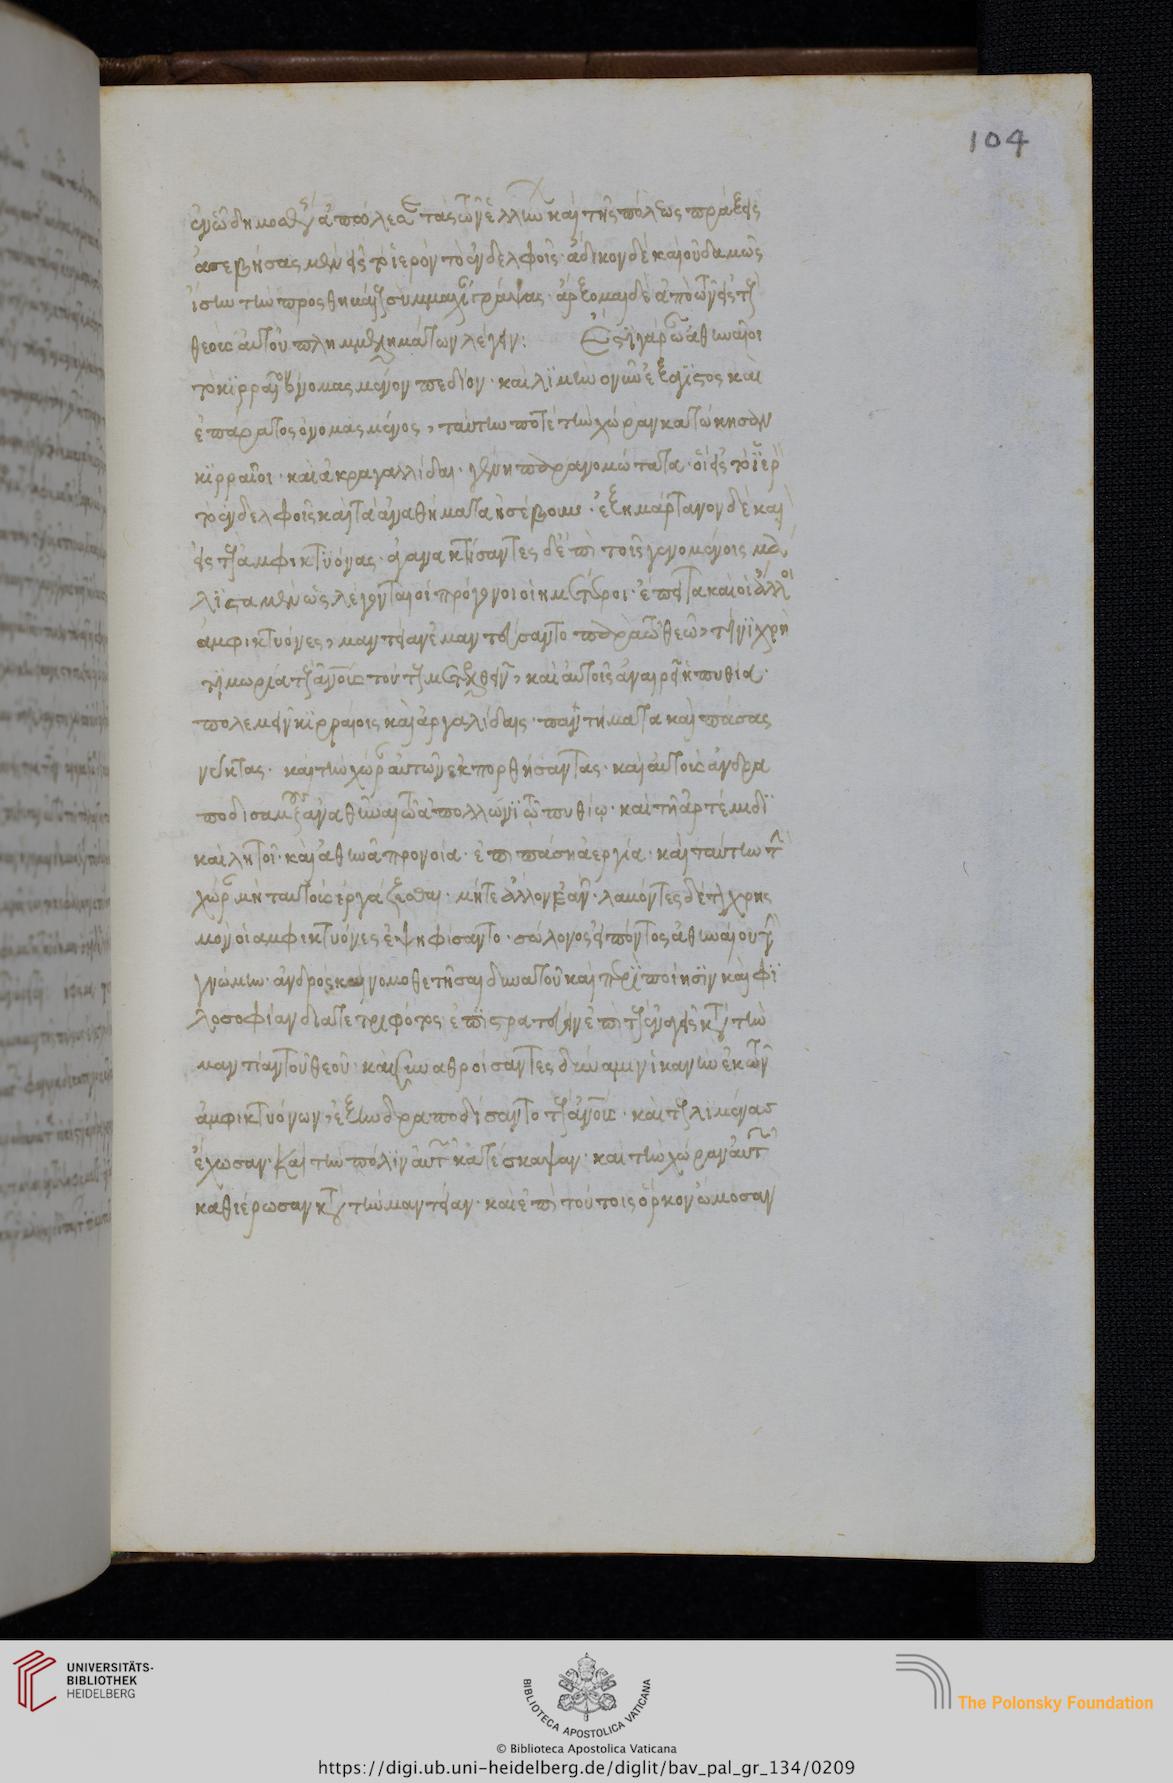 104
ἐν ᾧ δημοσθένης ἀπώλεσε τὰς τῶν ἑλλήνων καὶ τῆς πόλεως πράξεις
ἀσεβήσας μὲν εἰς τὸ ἱερὸν τὸ ἐν δελφοῖς· ἄδικον δὲ καὶ οὐδαμῶς
ἴσην τὴν πρὸς θηβαίους συμμαχίαν γράψας· ἄρξομαι δὲ ἀπὸ τῶν εἰς τοὺς
θεοὺς αὐτοῦ πλημμελημάτων λέγειν: Ἔστι γὰρ ὦ ἀθηναῖοι
τὸ κιρραῖον ὀνομασμένον πεδίον· καὶ λιμὴν ὁ νῦν ἐξάγιστος καὶ
ἐπάρατος ὀνομασμένος, ταύτην ποτὲ τὴν χώραν κατῴκησαν
κιρραῖοι· καὶ ἀκραγαλλίδαι· γένη παρανομώτατα· οἳ εἰς τὸ ἱερὸν
τὸ ἐν δελφοῖς καὶ τὰ ἀναθήματα ἠσέβουν· ἐξημάρτανον δὲ καὶ
εἰς τοὺς ἀμφικτύονας· ἀγανακτήσαντες δ' ἐπὶ τοῖς γενομένοις μά
λιστα μὲν ὡς λέγονται οἱ πρόγονοι οἱ ἡμέτεροι· ἔπειτα καὶ οἱ ἄλλοι
ἀμφικτύονες, μαντείαν ἐμαντεύσαντο παρὰ τῷ θεῷ, τίνι χρὴ
τιμωρίᾳ τοὺς ἀνους τούτους μετελθεῖν, καὶ αὐτοῖς ἀναιρεῖ ἡ πυθία·
πολεμεῖν κιρραίοις καὶ ἀργαλίδαις· πάντ' ἤματα καὶ πάσας
νύκτας· καὶ τὴν χώραν αὐτῶν ἐκπορθήσαντας· καὶ αὐτοὺς ἀνδρα
ποδισαμένους ἀναθεῖναι τῷ ἀπόλλωνι τῷ πυθίῳ· καὶ τῇ ἀρτέμιδι
καὶ λητοῖ· καὶ ἀθηνᾷ προνοίᾳ· ἐπὶ πάσῃ ἀεργίᾳ· καὶ ταύτην τὴν
χώραν μήτ' αὐτοὺς ἐργάζεσθαι· μήτε ἄλλον ἐᾶν· λαβόντες δὲ τὸν χρησ
μὸν οἱ ἀμφικτύονες ἐψηφίσαντο· σόλωνος εἰπόντος ἀθηναίου τὴν
γνώμην· ἀνδρὸς καὶ νομοθετῆσαι δυνατοῦ καὶ περὶ ποίησιν καὶ φι
λοσοφίαν διατετριφότος· ἐπιστρατεύειν ἐπὶ τοὺς ἐναγεῖς κατὰ τὴν
μαντείαν τοῦ θεοῦ· καὶ συναθροίσαντες δύναμιν ἱκανὴν ἐκ τῶν
ἀμφικτυόνων, ἐξηνδραποδίσαντο τοὺς ἀνους· καὶ τοὺς λιμένας
ἔχωσαν· καὶ τὴν πόλιν αὐτῶν κατέσκαψαν· καὶ τὴν χώραν αὐτῶν
καθιέρωσαν κατὰ τὴν μαντείαν· καὶ ἐπὶ τούτοις ὅρκον ὤμοσαν
UNIVERSITÄTS-
BIBLIOTHEK
HEIDELBERG
BIBLIOTECA APOSTOLICA VATICANA
© Biblioteca Apostolica Vaticana
The Polonsky Foundation
https://digi.ub.uni-heidelberg.de/diglit/bav_pal_gr_134/0209